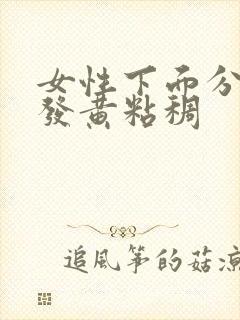 女性下面分
發黃粘稠
追風箏的菇涼